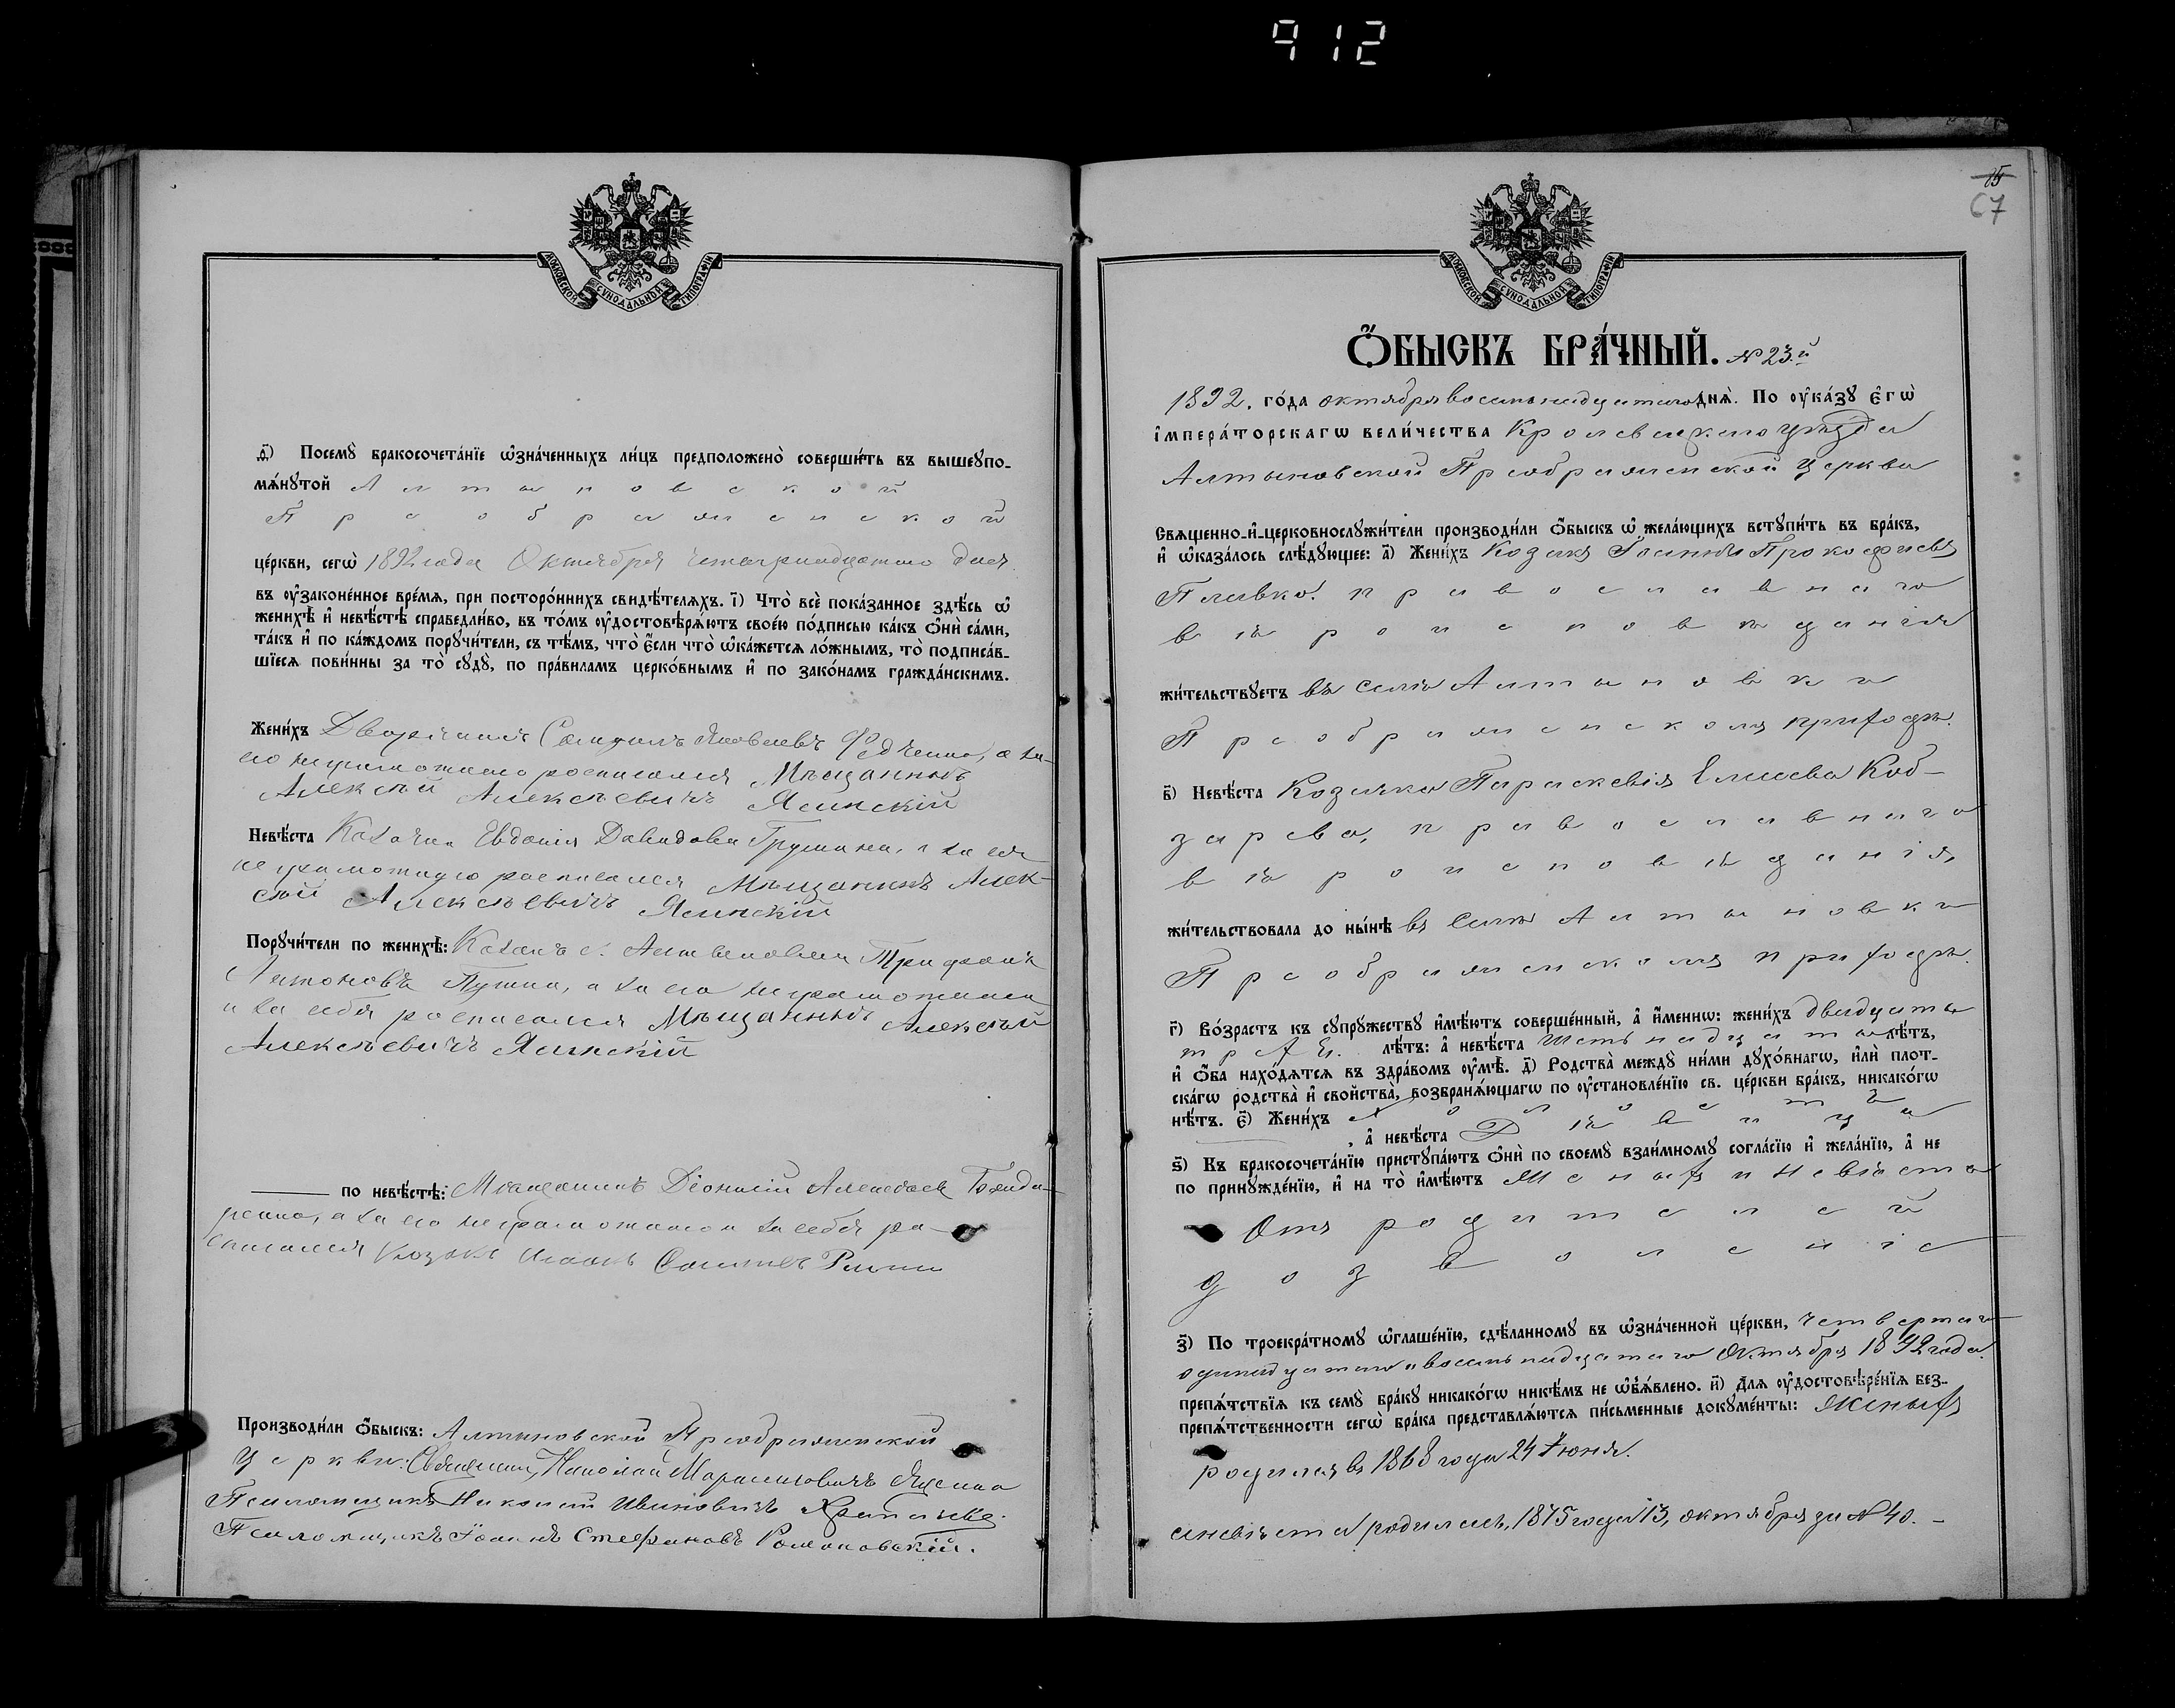 912
МОСКОВСКОЙ СУНОДАЛЬНОЙ ТИПОГРАФІИ
ѳ҃) Посемꙋ̀ бракосочета́нїе ѡ҆зна́ченныхъ ли́цъ предположено̀ соверши́ть въ вышеꙋпо-
мѧ́нꙋтой Алтыновской
Преображенской
це́ркви, сегѡ̀ 1892 года Октября четырнадцатого дня
въ ᲂу҆законе́нное вре́мѧ, при посторо́ннихъ свидѣ́телѧхъ. і҃) Что̀ всѐ пока́занное здѣ́сь ѡ҆
женихѣ̀ и҆ невѣ́стѣ справедли́во, въ то́мъ ᲂу҆достовѣрѧ́ютъ свое́ю по́дписью ка́къ ѻ҆нѝ са́ми,
та́къ и҆ по ка́ждомъ порꙋчи́тели, съ тѣ́мъ, что̀ є҆́сли что̀ ѡ҆ка́жетсѧ ло́жнымъ, то̀ подписа́в-
шїесѧ пови́нны за то̀ сꙋдꙋ̀, по пра́виламъ церко́внымъ и҆ по зако́намъ гражда́нскимъ.
Жени́хъ Дворянинъ Яковлевъ а за
его неграмотнаго росписался Мѣщанинъ
Алексѣй Алексѣевичъ Ясинскій
Невѣ́ста Евдокія Давидова а за ея
неграмотную росписался Мѣщанинъ Алек-
сѣй Алексѣевичъ Ясинскій
Порꙋчи́тели по женихѣ̀: Козакъ с. Алтыновки Трифонъ
Антоновъ а за его неграмотнаго
и за себя росписался Мѣщанинъ Алексѣй
Алексѣевичъ Ясинскій
по невѣ́стѣ: Мѣщанинъ Діонисій Алексѣевъ
а за его неграмотнаго и за себя ро-
списался Козакъ
Производи́ли ѻ҆́быскъ: Алтыновской Преображенской
Церкви: Священникъ Николай
Псаломщикъ Николай Ивановичъ
Псаломщикъ Іоаннъ Стефановъ Романовскій.
МОСКОВСКОЙ СУНОДАЛЬНОЙ ТИПОГРАФІИ
15
67
Ѻ҆́БЫСКЪ БРА́ЧНЫЙ. № 23.й
1892. го́да октября восемнадцатаго днѧ̀. По ᲂу҆ка́зꙋ є҆гѡ̀
і҆мпера́торскагѡ вели́чества Кролевецкаго уѣзда
Алтыновской Преображенской церкви
Свѧщенно-и҆-церковнослꙋжи́тели производи́ли ѻ҆́быскъ ѡ҆ жела́ющихъ встꙋпи́ть въ бра́къ,
и҆ ѡ҆каза́лось слѣ́дꙋющее: а҃) Жени́хъ Козакъ Іоаннъ Прокофіевъ
православнаго
вѣроисповѣданія
жи́тельствꙋетъ въ селѣ Алтыновки
Преображенскомъ приходѣ.
в҃) Невѣ́ста Козачка Параскевія Елисеева Коб-
зарева, православнаго
вѣроисповѣданія,
жи́тельствовала до ны́нѣ въ селѣ Алтыновки
Преображенскомъ приходѣ.
г҃) Во́зрастъ къ сꙋпрꙋ́жествꙋ и҆мѣ́ютъ соверше́нный, а҆ и҆́менно: жени́хъ двадцаты
трехъ. лѣ́тъ: а҆ невѣ́ста шестьнадцаты лѣ́тъ,
и҆ ѻ҆́ба нахо́дѧтсѧ въ здра́вомъ ᲂу҆мѣ̀. д҃) Родства̀ междꙋ̀ ни́ми дꙋхо́внагѡ, и҆лѝ плот-
ска́гѡ родства̀ и҆ свойства̀, возбранѧ́ющагѡ по ᲂу҆становле́нїю св. це́ркви бра́къ, никако́гѡ
нѣ́тъ. є҃) Жени́хъ холостъ
, а҆ невѣ́ста Дѣвица
ѕ҃) Къ бракосочета́нїю пристꙋпа́ютъ ѻ҆нѝ по своемꙋ̀ взаи́мномꙋ согла́сїю и҆ жела́нїю, а҆ не
по принꙋжде́нїю, и҆ на то̀ и҆мѣ́ютъ Женихъ и невѣста
отъ родителей
дозволеніе
з҃) По троекра́тномꙋ ѡ҆глаше́нїю, сдѣ́ланномꙋ въ ѡ҆зна́ченной це́ркви, четвертаго
одинадцатаго и восемнадцатаго Октября 1892 года.
препѧ́тствїѧ къ семꙋ̀ бра́кꙋ никако́гѡ никѣ́мъ не ѡ҆б̾ѧ́влено. и҃) Длѧ ᲂу҆достовѣре́нїѧ без-
препѧ́тственности сегѡ̀ бра́ка представлѧ́ютсѧ пи́сьменные докꙋме́нты: Женихъ
родился въ 1868 года 24 Іюня.
а невѣста родилась, 1875 года 13, октября за № 40. -